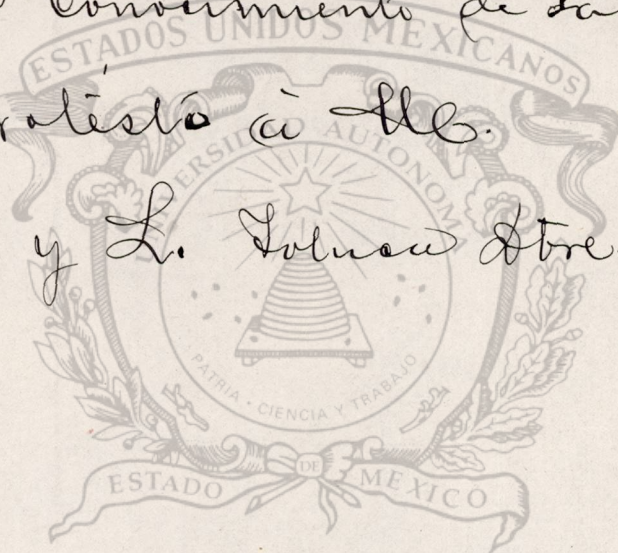 Conocimiento de la
ESTADOS UNIDOS MEXICANOS
rotésto á
UNIVERSIDAD AUTONOMA
y L. Toluca Dbre
PATRIA • CIENCIA Y TRABAJO
DE
ESTADO MEXICO